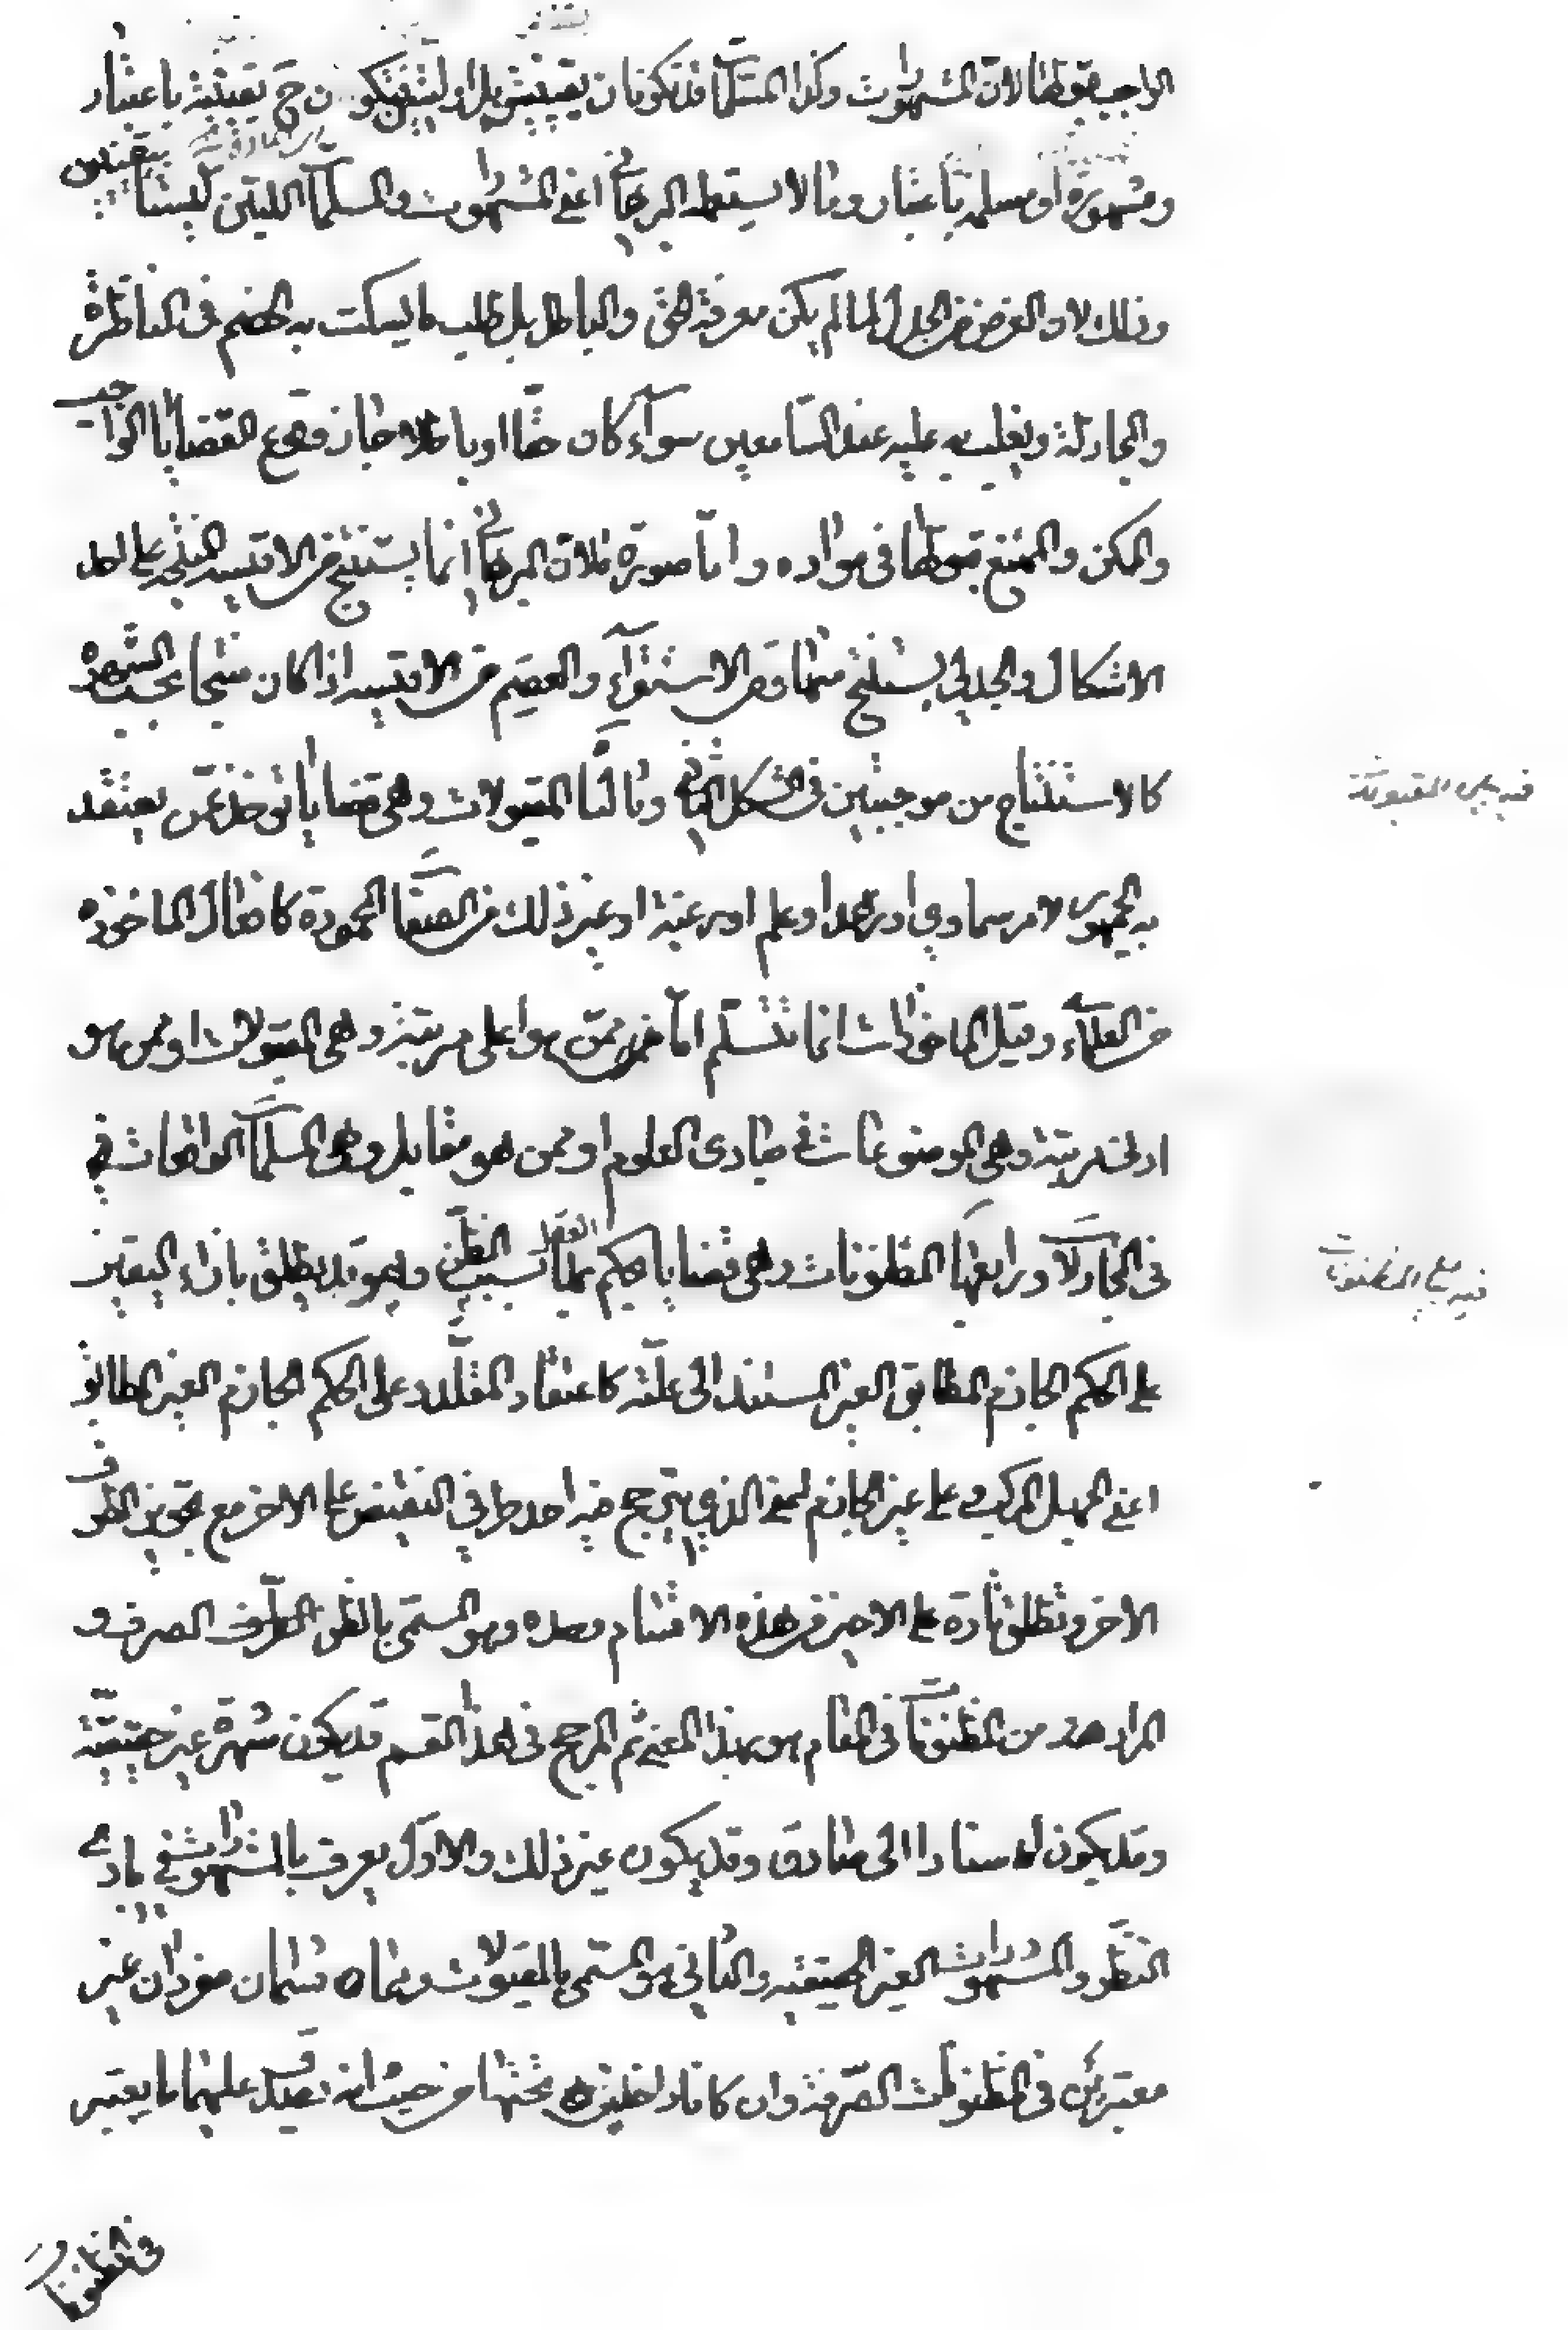 الواجب قبولها لان المشهورات وكذا المسلمات قد تكونان يقينيتين بل اوليتين فتكون ح يقينية باعتبار
ومشهورة او مسلمة باعتبار وما لا يستعمله البرهاني اعني المشهورات والمسلمات اللتين ليستا يقينيتين
وذلك لان الغرض من الجدل لما لم يكن معرفة الحق والباطل بل طلب ما يسكت به الخصم فى المناظرة
والمجادلة ويغلب به عليه عند السامعين سوآء كان حقّا او باطلا جاز وقوع القضايا الواجب
والممكن والممتنع قبولها فى مواده واما صورة فلان البرهاني انما يستنتج من الاقيسة المنتجة على احد
الاشكال والجدلي يستنتج منها ومن الاستقرآء والعقيم من الاقيسة اذا كان منتجا بحسب الشهرة
كالاستنتاج من موجبتين فى الشكل الثاني وثالثها المقبولات وهى قضايا تؤخذ عمن يعتقد
به الجمهور لامر سماوي او زهد او علم او رغبة او غير ذلك من الصفات المحمودة كاقوال الماخوذه
من العلمآء وقيل الماخوذات انما تتسلم اما ممن هو اعلى مرتبة وهى المقبولات او ممن هو
ادنى مرتبة وهى الموضوعات فى مبادى العلوم او ممن هو مقابل وهى المسلمات الواقعات فى
فى المجادلات ورابعها المظنونات وهى قضايا يحكم بها العقل بسبب الظن وهو قد يطلق بازاء اليقين
على الحكم الجازم المطابق الغير المستند الى علّته كاعتقاد المقلّد وعلى الحكم الجازم الغير المطابق
اعنى الجهل المركب وعلى غير الجازم لمعنى الذي يترجح فيه احد طرفي النقيض على الاخر مع تجويز الطرف
الاخر وتطلق تارة على الاخير من هذه الاقسام وحده وهو المسمّى بالظن الصرف و
المراد هنا من المظنونات فى المقام هو بهذا المعنى ثم المرجح فى هذا القسم قد يكون شهرة غير حقيقيّة
وقد يكون استنادا الى صادق وقد يكون غير ذلك والاوّل يعرف بالمشهورات في بادئ
النظر والمشهورات الغير الحقيقيه والثاني هو المسمّى بالمقبولات وهما قسمان مفردان غير
معتبرين فى المظنونات الصّرفة وان كانا داخلين تحتها من حيث انه يصدق عليهما ما يعتبر
فى المظنونات
فيه بيان المقبولات
فيه بيان المظنونات